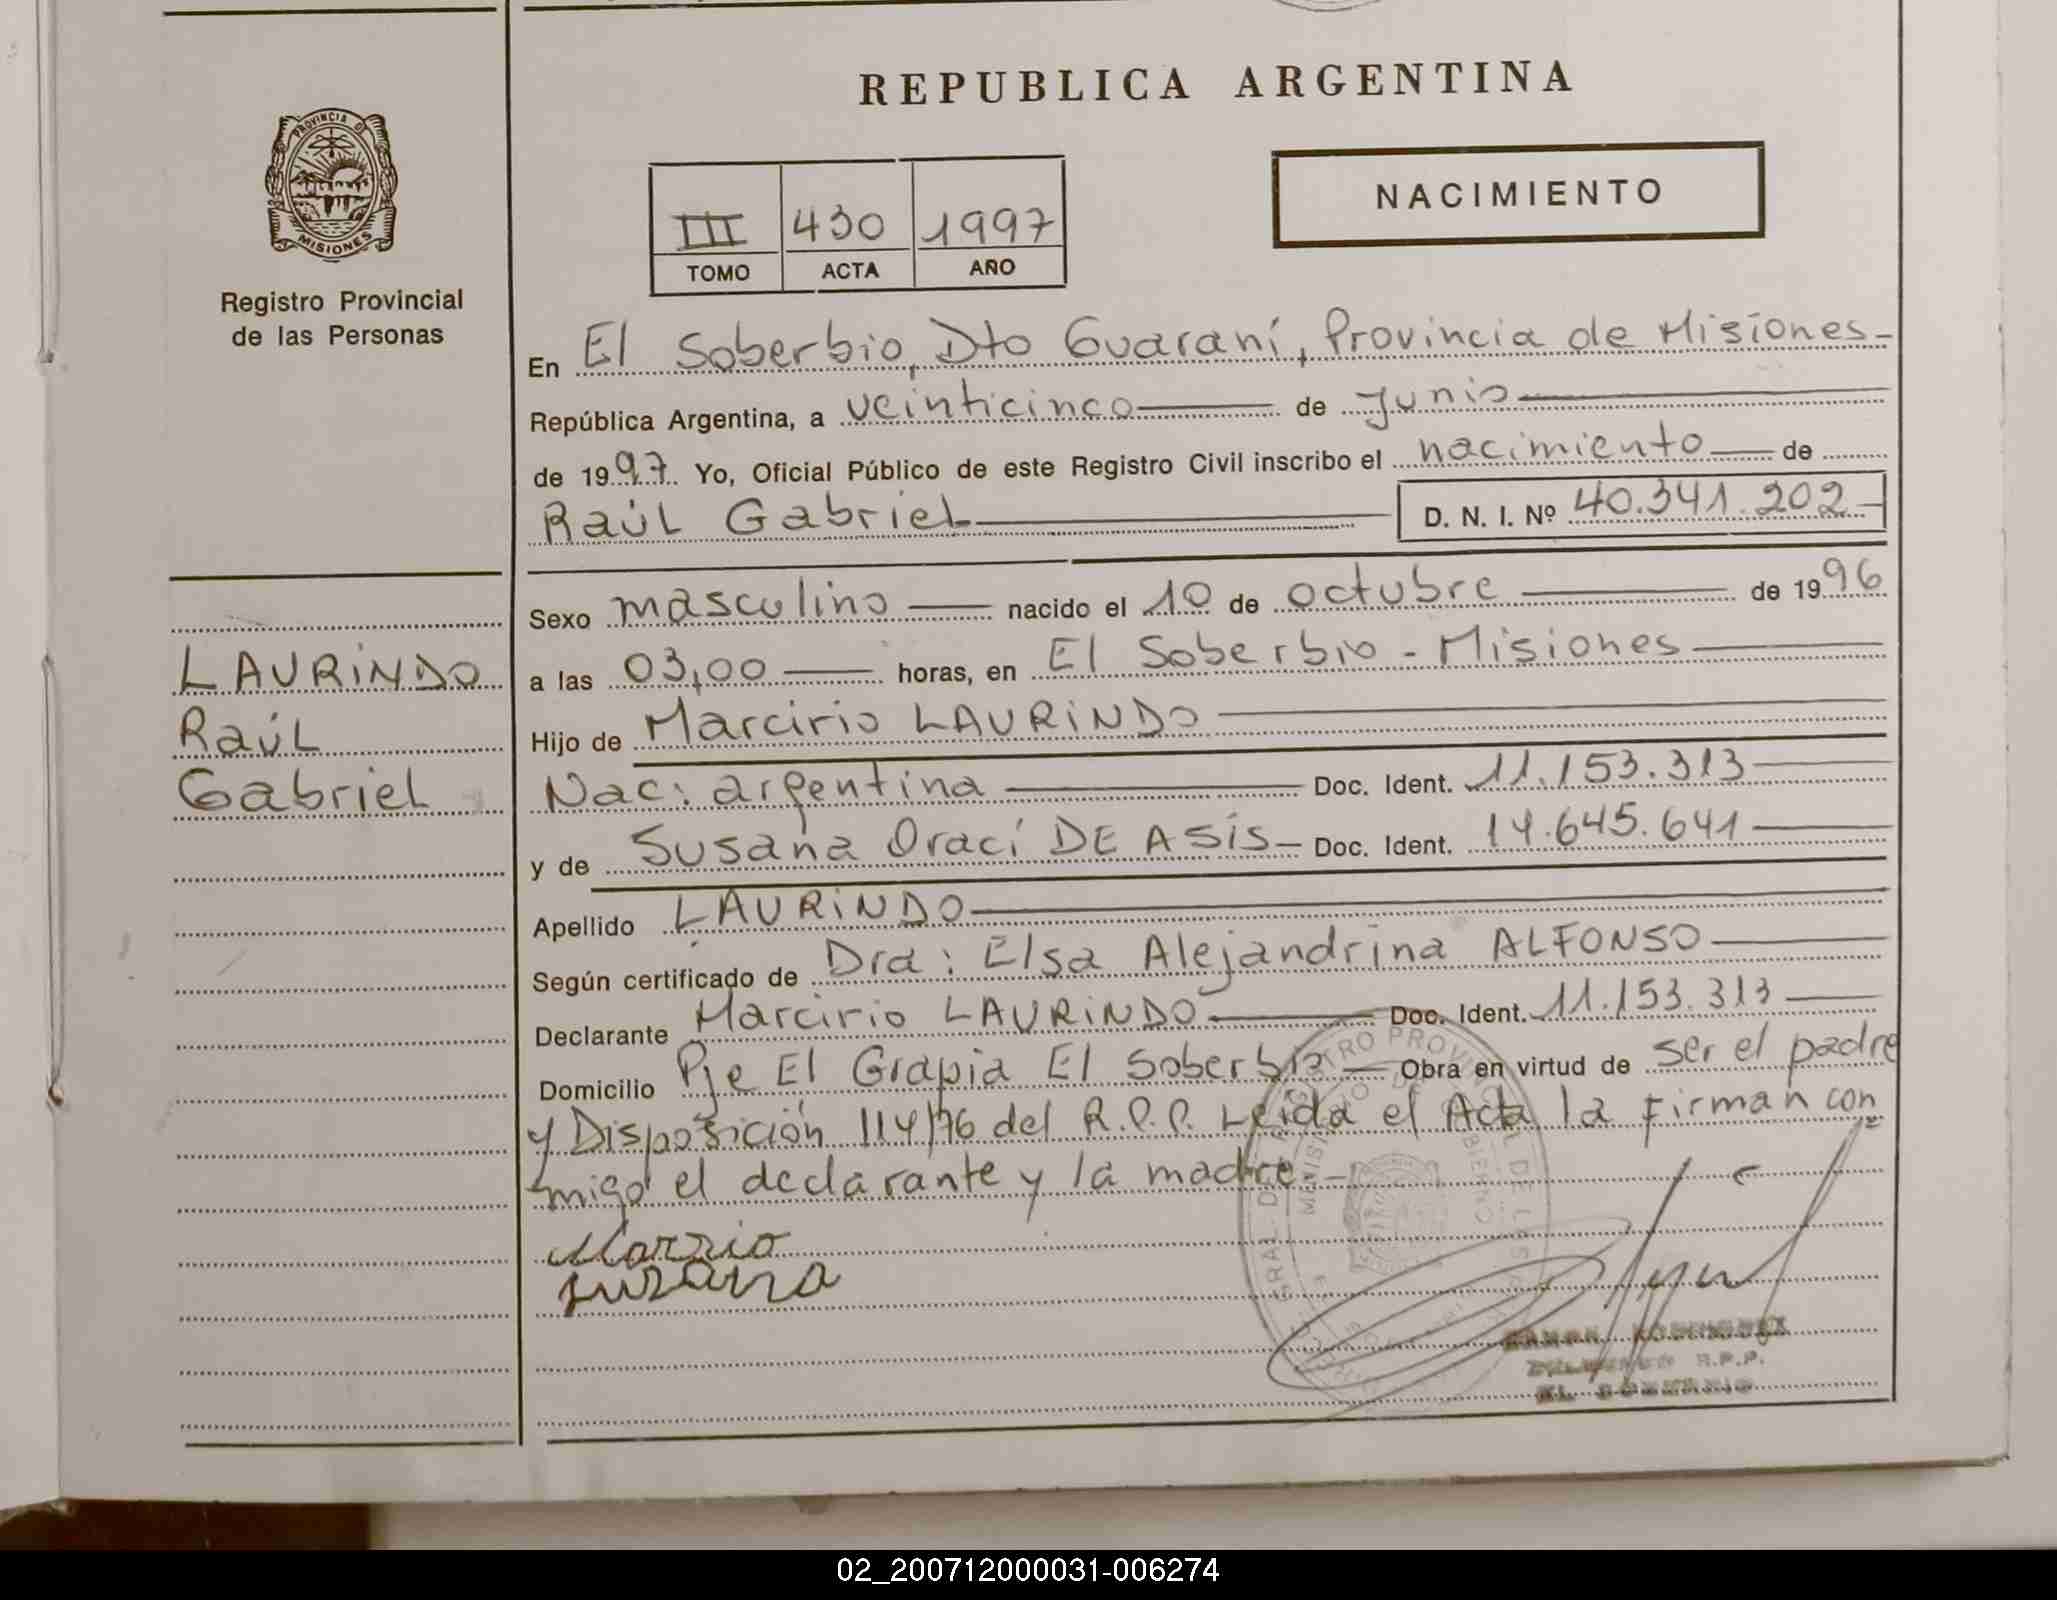 REPUBLICA ARGENTINA
PROVINCIA DE
MISIONES
Registro Provincial
de las Personas
NACIMIENTO
III 430 1997
TOMO ACTA AÑO
En El Soberbio, Dto Guaraní, Provincia de Misiones-
República Argentina, a veinticinco de Junio
de 1997 Yo, Oficial Público de este Registro Civil inscribo el nacimiento de
Raúl Gabriel D. N. I. Nº 40.341.202-
Sexo masculino nacido el 10 de octubre de 1996
a las 03,00 horas, en El Soberbio - Misiones
Hijo de Marcirio LAURINDO
Nac: argentina Doc. Ident. 11.153.313
y de Susana Oraci DE ASIS- Doc. Ident. 14.645.641
Apellido LAURINDO
Según certificado de Dra: Elsa Alejandrina ALFONSO
Declarante Marcirio LAURINDO Doc. Ident. 11.153.313
Domicilio Pje El Grapia El Soberbio Obra en virtud de ser el padre
y Disposición 114/76 del R.P.P. Leida el Acta la Firman con
migo el declarante y la madre.-
LAURINDO
Raúl
Gabriel
Marzio
Suzana
R.P.P.
EL SOBERBIO
02_200712000031-006274